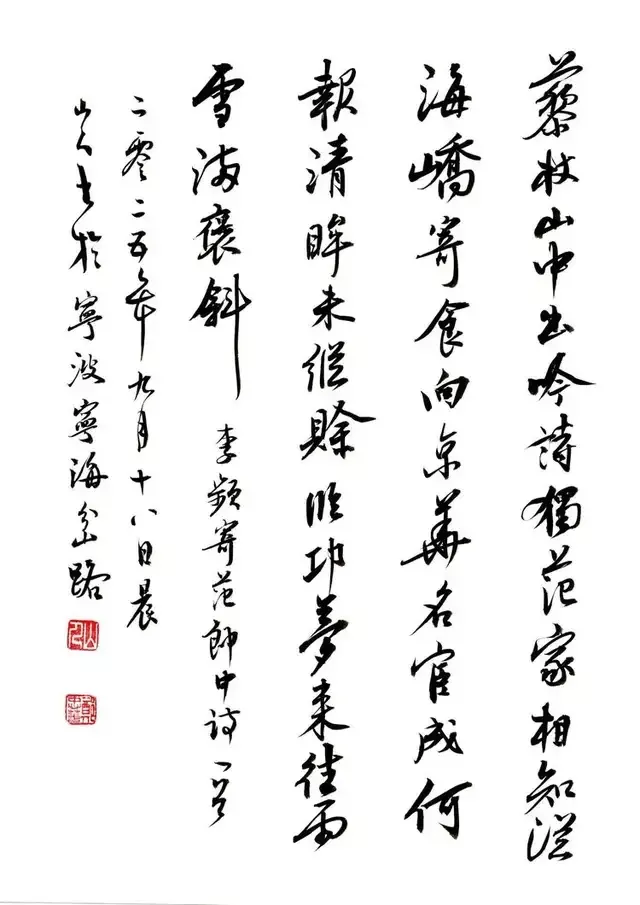 藜杖山中出吟詩獨范家相知從
海嶠寄食向京華名宦成何
報清眸未縱賒臨邛夢來往雨
雪滿褒斜 李頻寄范郎中詩一首
二零二五年九月十八日晨
山人書於寧波寧海岔路